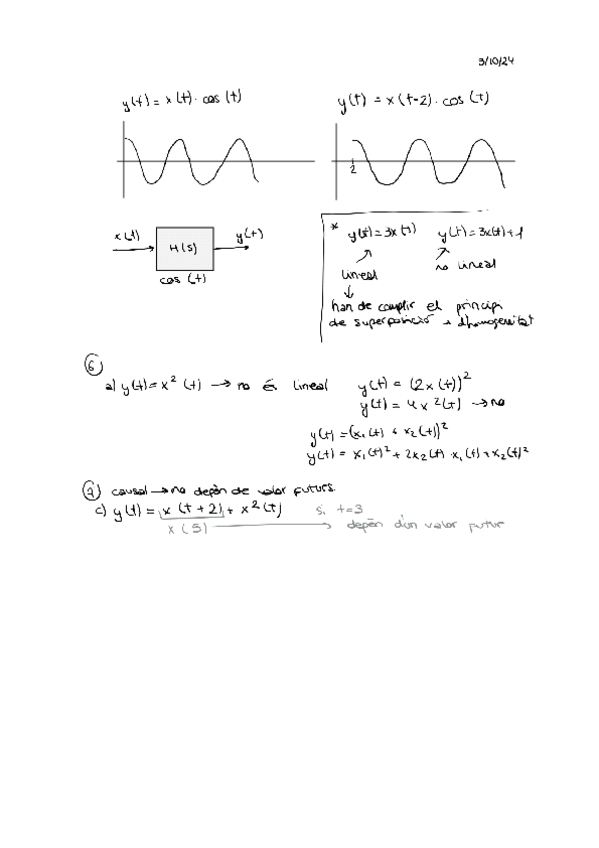 3/10/24
y(t) = x(t) · cos(t)
y(t) = x(t-2) · cos(t)
2
x(t)
H(s)
y(t)
cos(t)
* y(t)=3x(t) y(t)=3x(t)+1
lineal
no lineal
han de complir el principi
de superposició + d'homogeneitat
6
a) y(t)= x²(t) → no és lineal y(t) = (2x(t))²
y(t) = 4x²(t) → no
y(t) = (x₁(t) + x₂(t))²
y(t) = x₁(t)² + 2x₂(t) · x₁(t) + x₂(t)²
7 causal → no depèn de valor futurs.
c) y(t) = x(t+2) + x²(t) si t=3
x(5) → depèn d'un valor futur